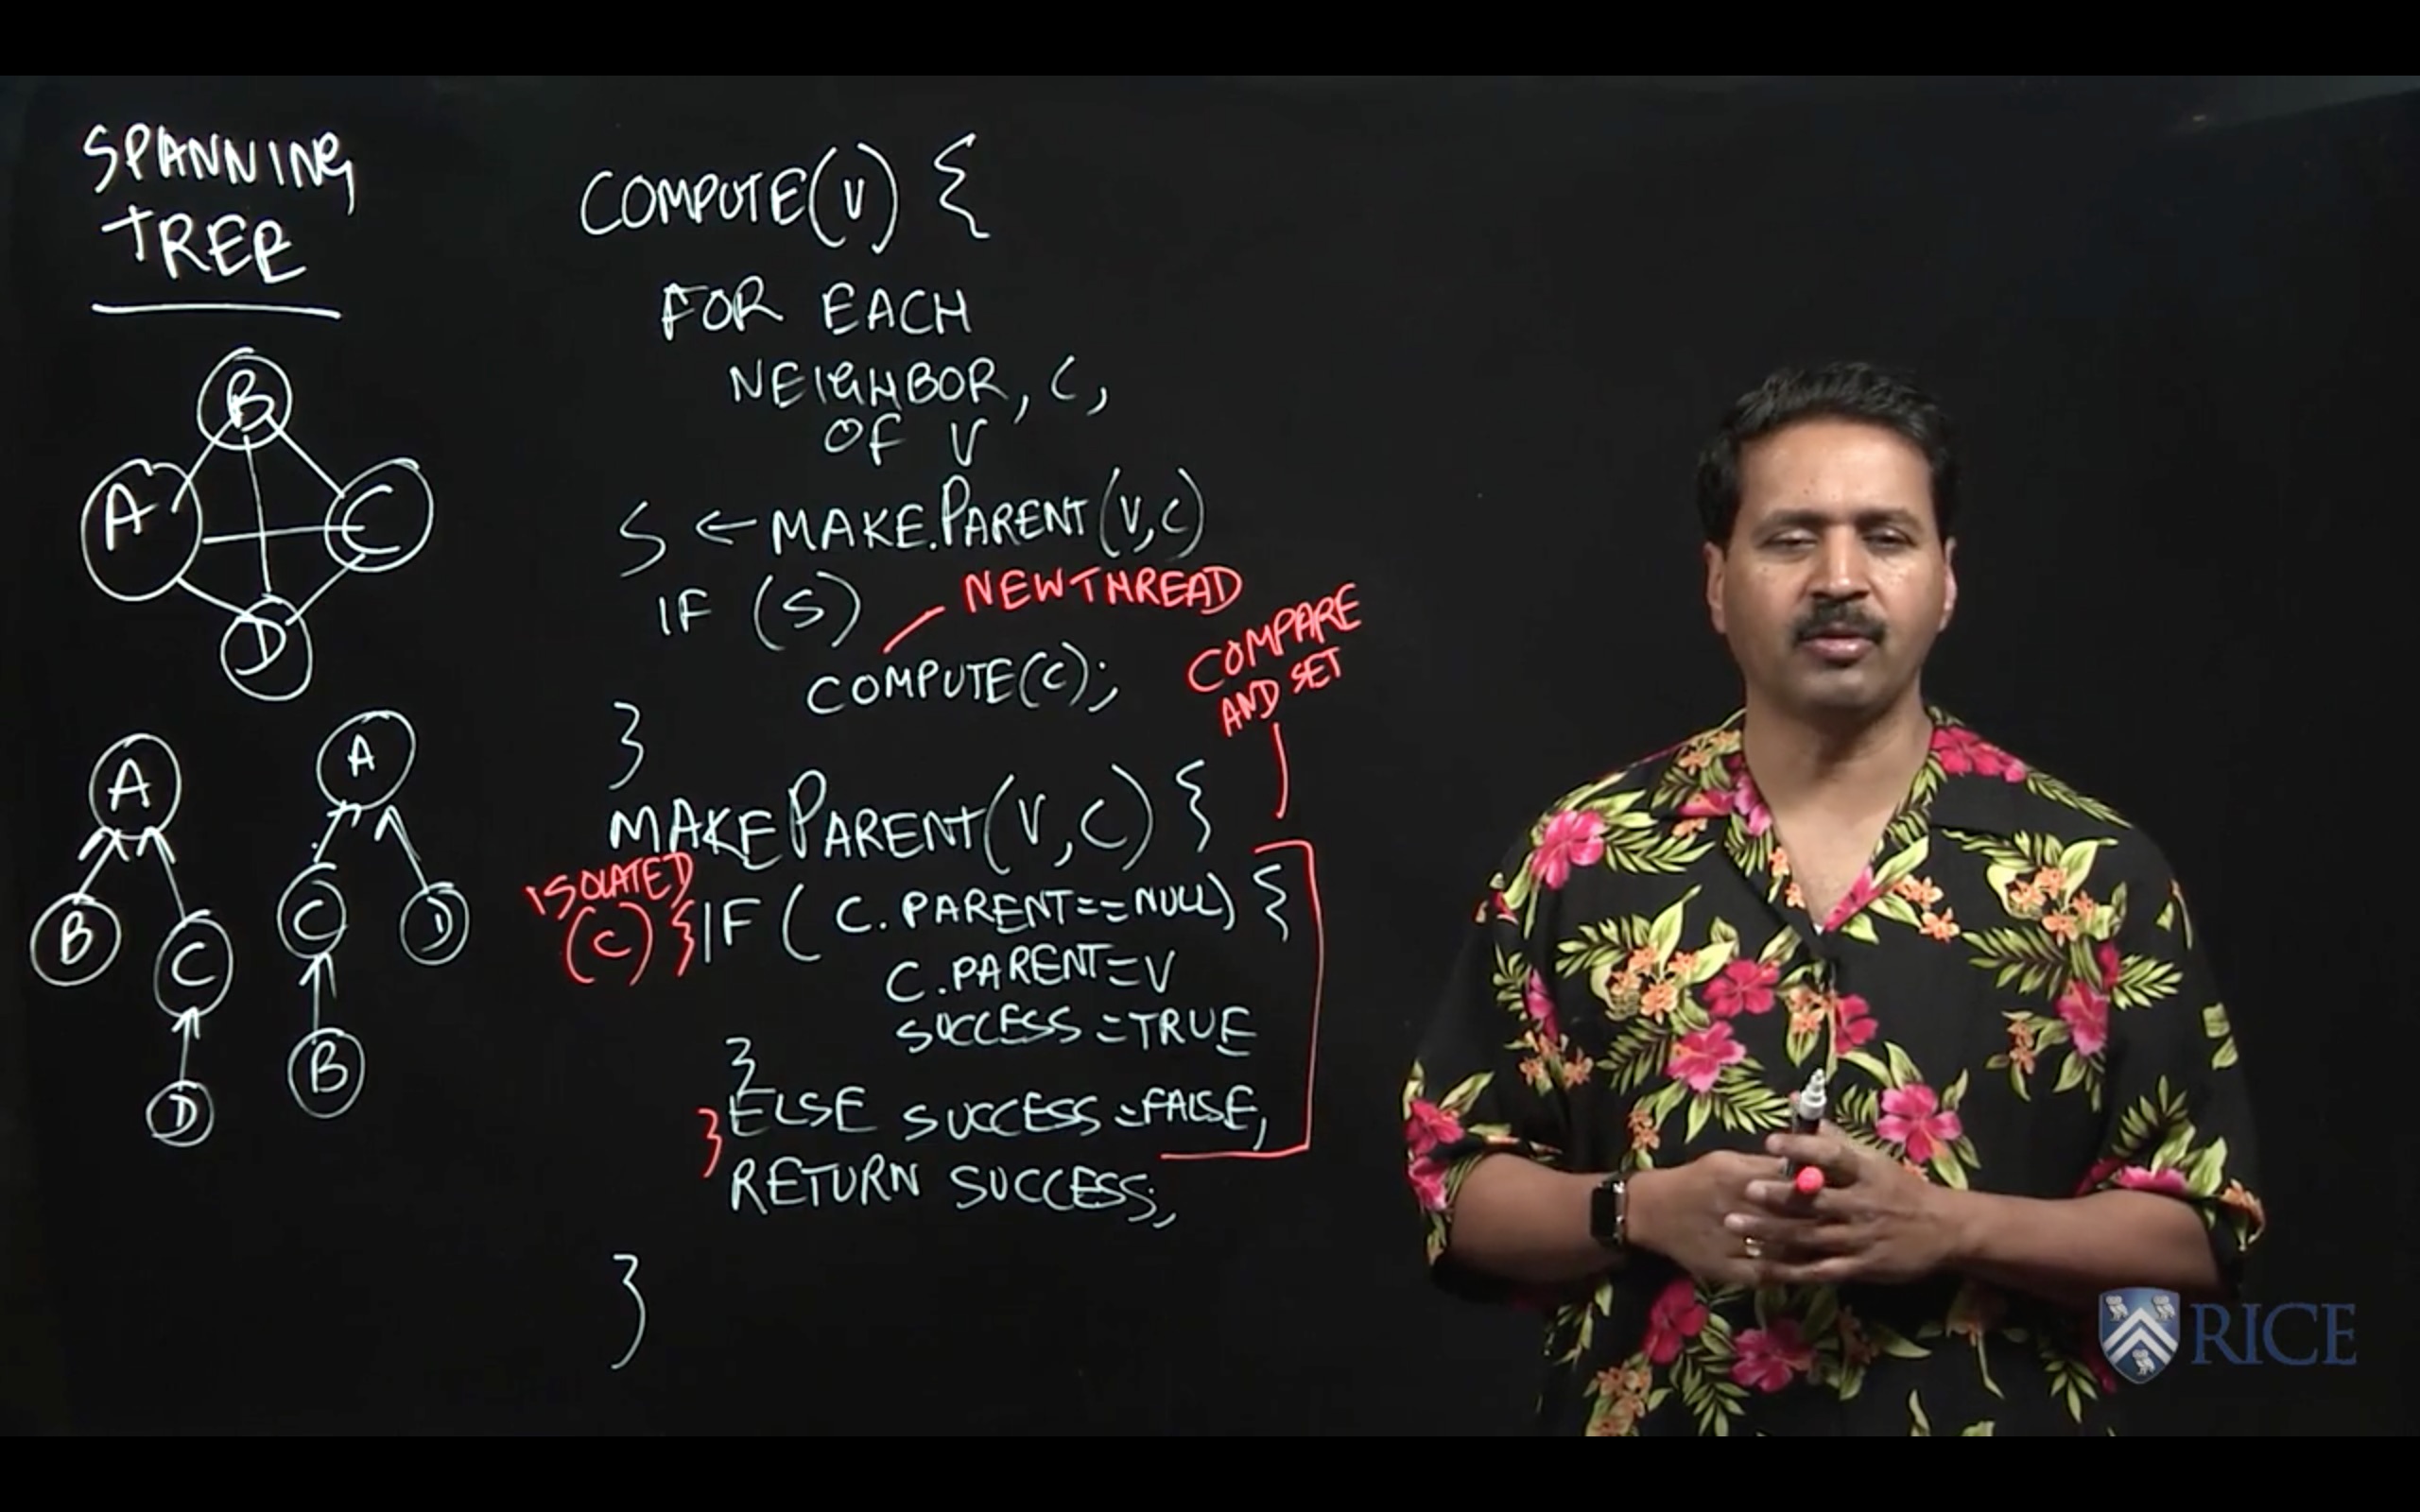 SPANNING
TREE
B
A
C
D
A
B
C
D
A
C
D
B
COMPUTE(V) {
FOR EACH
NEIGHBOR, C,
OF V
S ← MAKE.PARENT(V,C)
IF (S)
NEW THREAD
COMPUTE(C);
}
COMPARE
AND SET
MAKEPARENT(V,C) {
ISOLATED
(C) { IF ( C.PARENT==NULL) {
C.PARENT=V
SUCCESS=TRUE
}
} ELSE SUCCESS=FALSE;
RETURN SUCCESS;
}
RICE